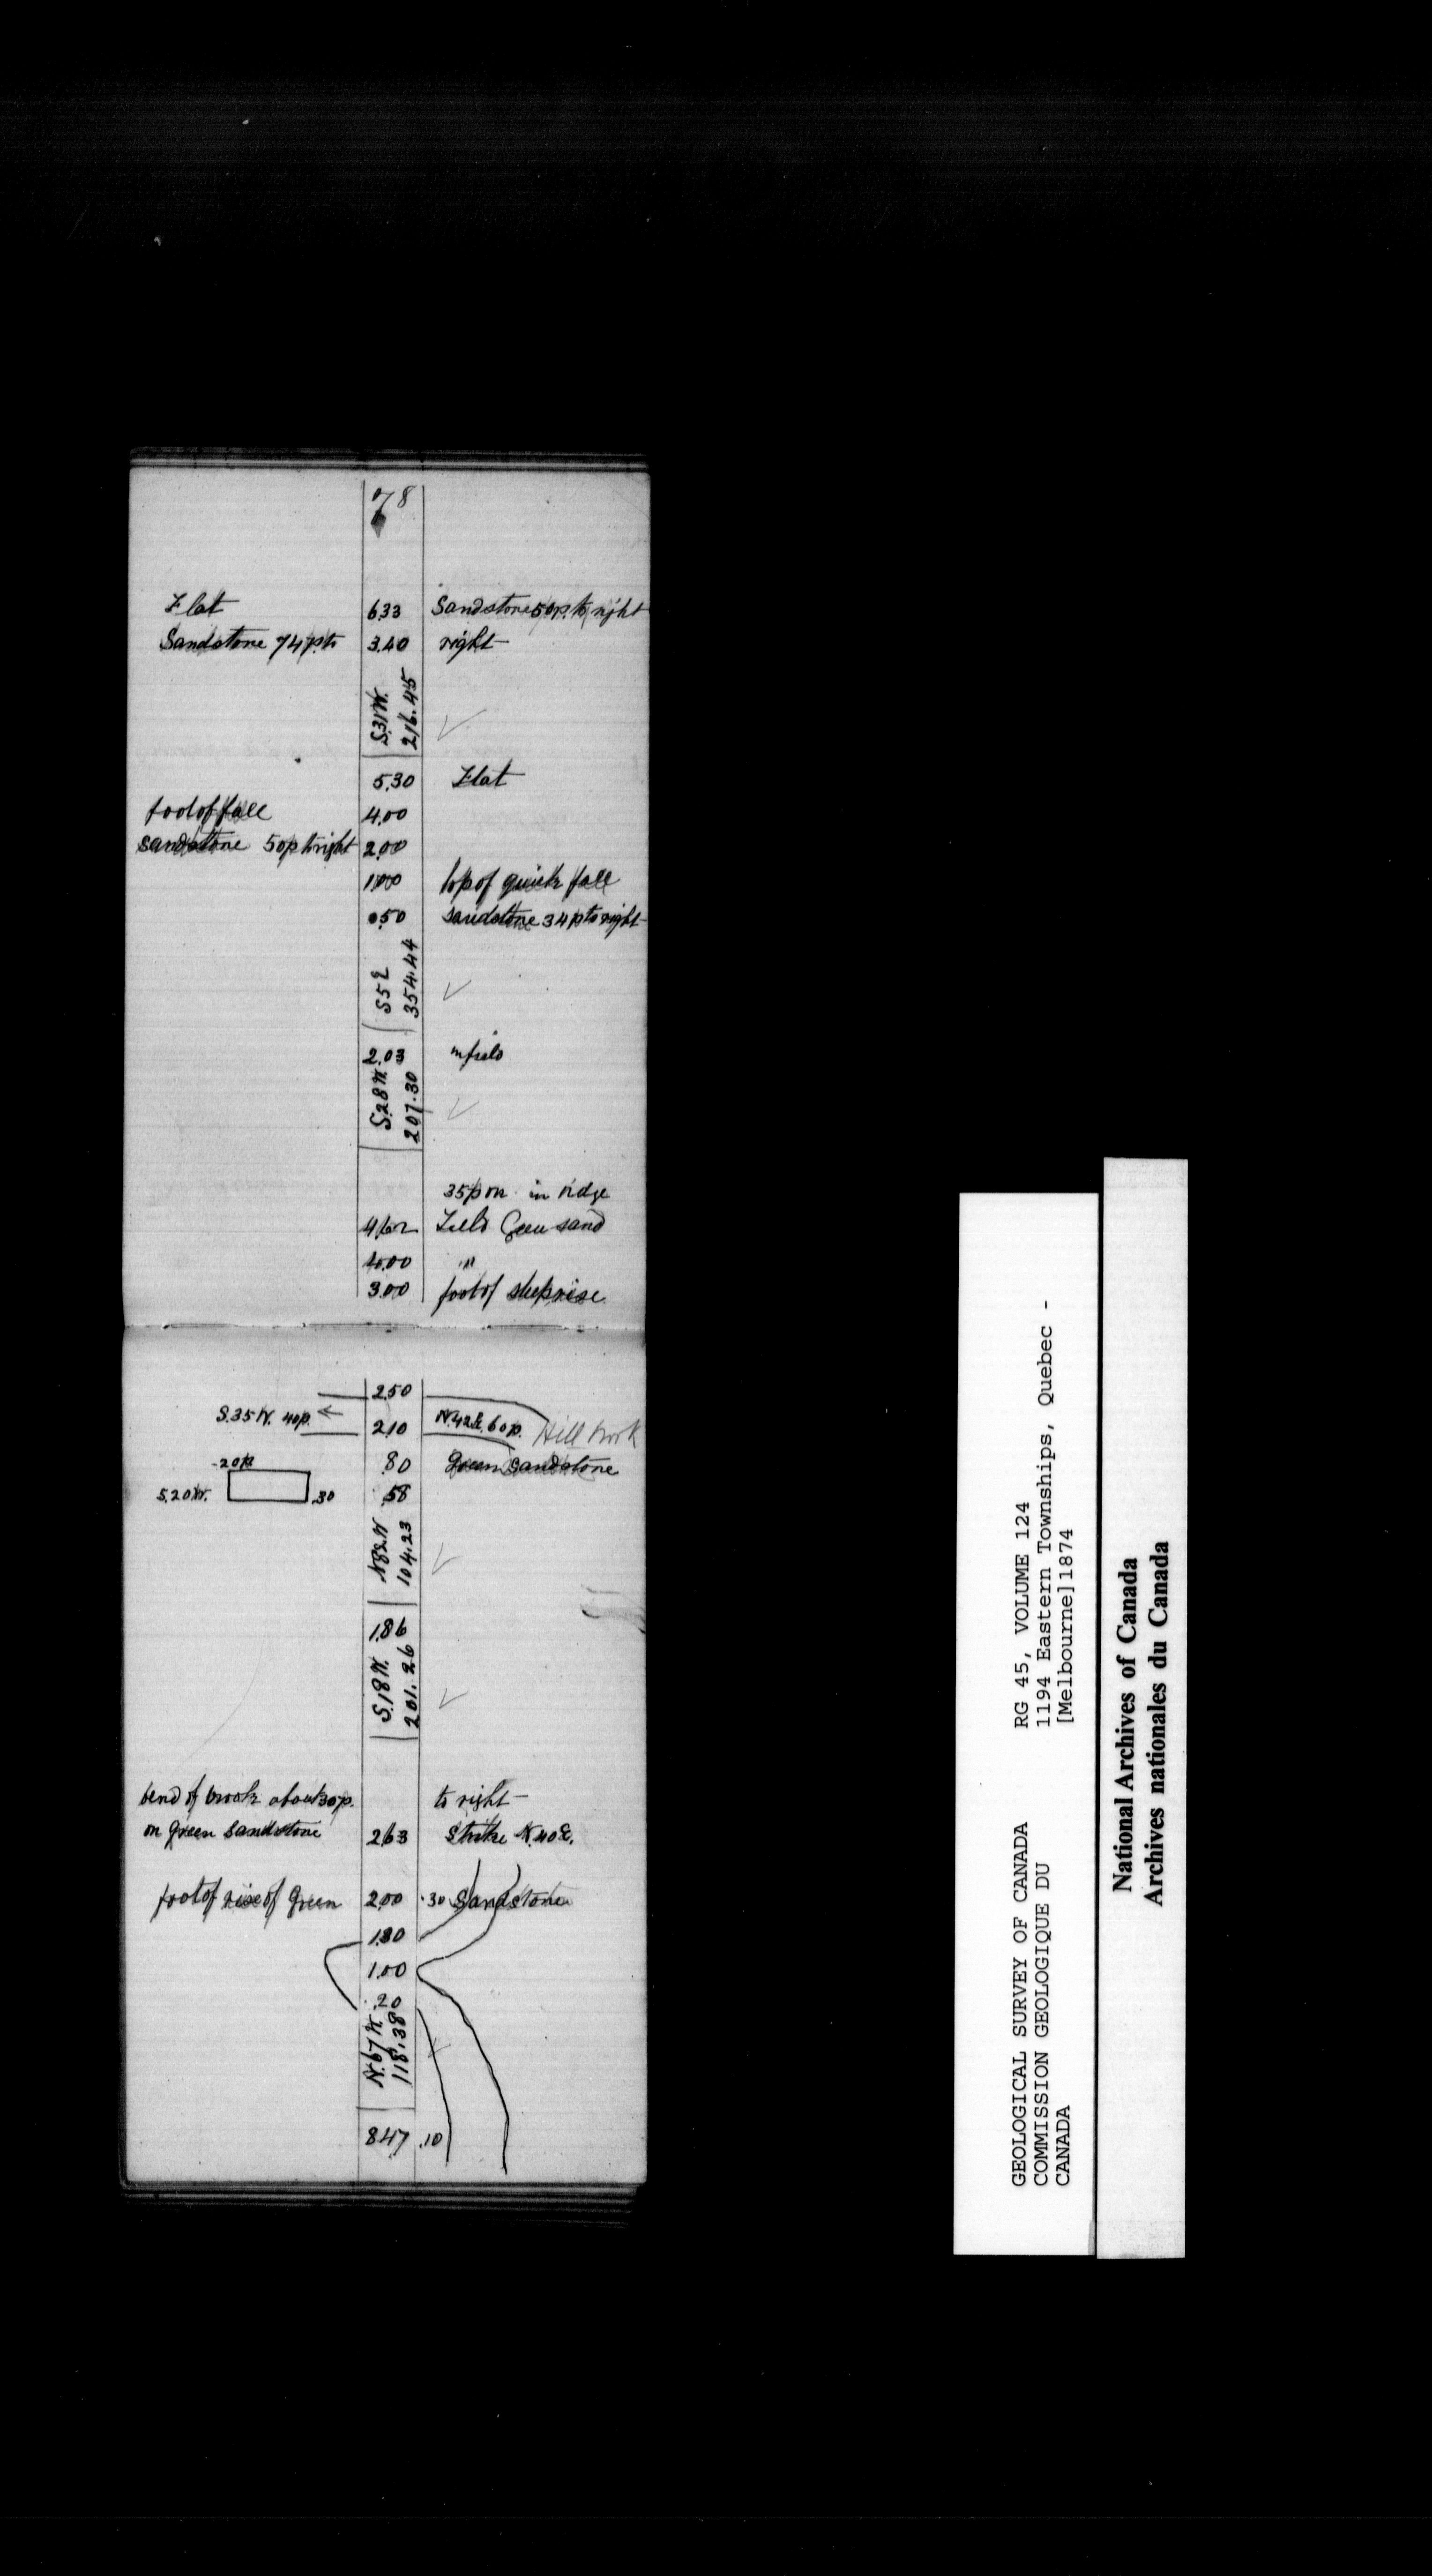 78
Flat 6.33 Sandstone 50p. to right
Sandstone 74p. to 3.40 right
S.31W.
216.45
5.30 Flat
foot of fall 4.00
sandstone 50p to right 2.00
1.00 top of quick fall
0.50 sandstone 34p to right
S5E
354.44
2.03 in field
S.28W.
207.30
35p on in ridge
4.62 Field Green sand
4.00 "
3.00 foot of steep rise
2.50
S.35W. 40p. 2.10 N.42E. 60p. Hill brook
20p .80 green sandstone
S.20W. .30 .58
N82W
104.23
1.86
S.18W.
201.26
bend of brook about 30p. to right
on green sandstone 2.63 Strike N.40E.
foot of rise of green 2.00 .30 Sandstone
1.30
1.00
.20
N.67W
118.38
8.47 .10
GEOLOGICAL SURVEY OF CANADA
COMMISSION GEOLOGIQUE DU
CANADA
RG 45, VOLUME 124
1194 Eastern Townships, Quebec -
[Melbourne]1874
National Archives of Canada
Archives nationales du Canada